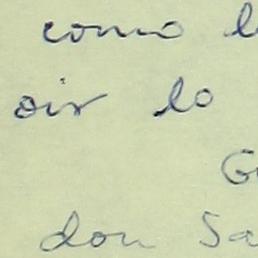 como l
oir lo
G
don Sa